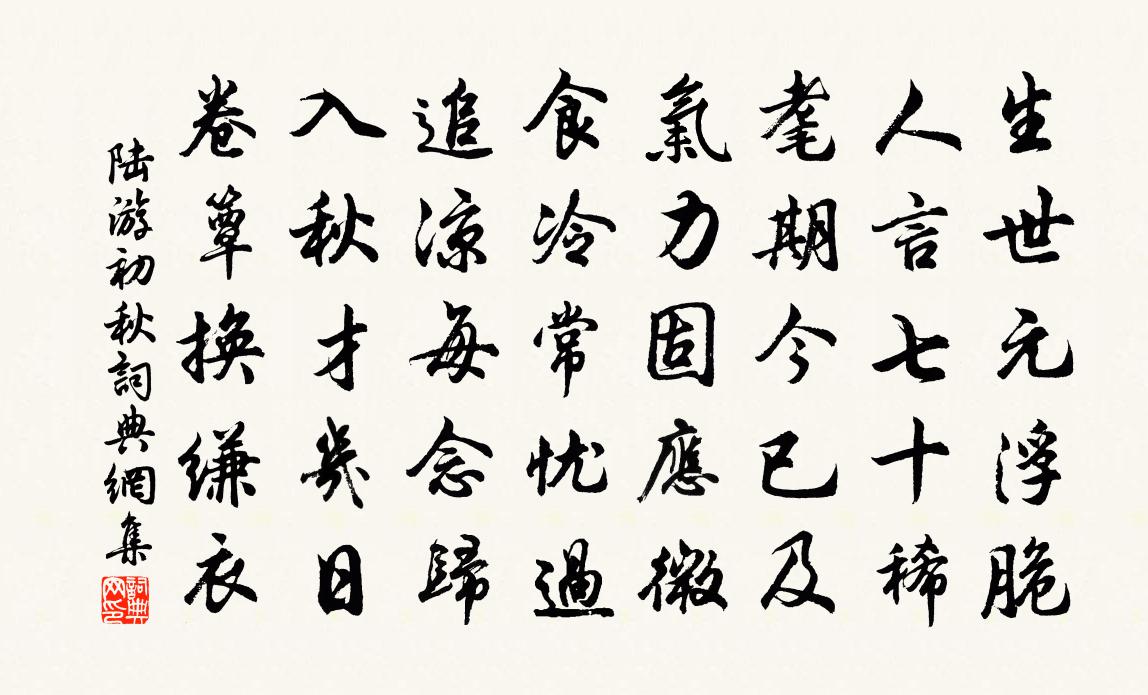 生世元浮脆
人言七十稀
耄期今已及
氣力固應微
食冷常忧過
追涼每念歸
入秋才幾日
卷簟換縑衣
陆游初秋詞典網集
詞典網印